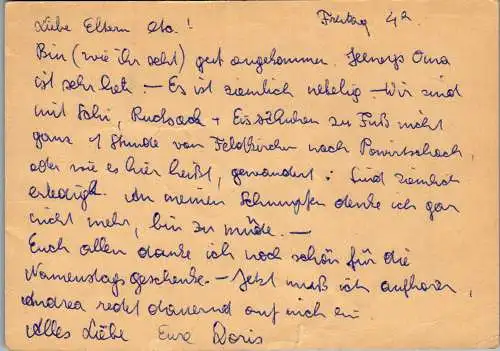 Liebe Eltern etc.! Freitag 4h
Bin (wie ihr seht) gut angekommen. Oma
ist sehr lieb — Es ist ziemlich nebelig — Wir sind
mit Schi, Rucksack + Eisschuhen zu Fuß nicht
ganz 1 Stunde von Feldkirchen nach
oder wie es hier heißt, gewandert. Sind ziemlich
erledigt. An meinen Schnupfen denke ich gar
nicht mehr, bin zu müde. —
Euch allen danke ich noch schön für die
Namenstagsgeschenke. — Jetzt muß ich aufhören,
Andrea redet dauernd auf mich ein.
Alles Liebe Eure Doris